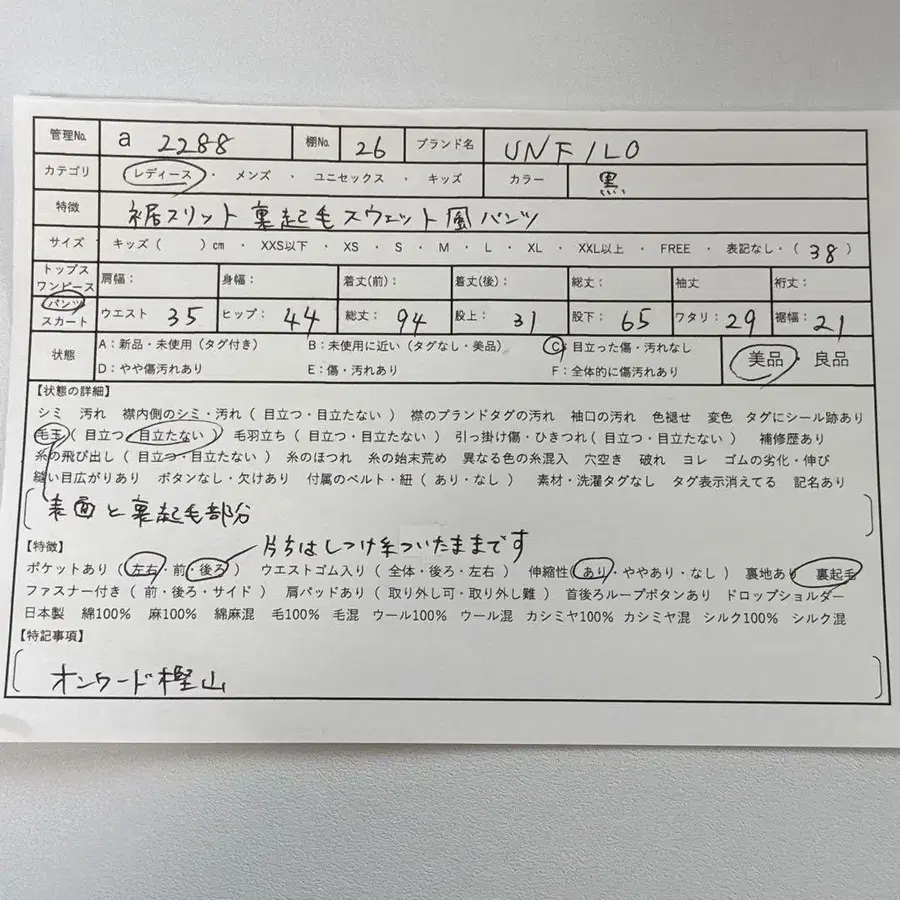 管理No. a 2288 棚No. 26 ブランド名 UNFILO
カテゴリ レディース ・ メンズ ・ ユニセックス ・ キッズ カラー 黒
特徴 裾スリット裏起毛スウェット風パンツ
サイズ キッズ( )cm ・ XXS以下 ・ XS ・ S ・ M ・ L ・ XL ・ XXL以上 ・ FREE ・ 表記なし ・ ( 38 )
トップス ワンピース 肩幅： 身幅： 着丈(前)： 着丈(後)： 総丈： 袖丈 裄丈：
パンツ スカート ウエスト 35 ヒップ： 44 総丈： 94 股上： 31 股下： 65 ワタリ： 29 裾幅： 21
状態 A：新品・未使用（タグ付き） B：未使用に近い（タグなし・美品） C：目立った傷・汚れなし 美品 ・ 良品
D：やや傷汚れあり E：傷・汚れあり F：全体的に傷汚れあり
【状態の詳細】
シミ 汚れ 襟内側のシミ・汚れ（ 目立つ・目立たない ） 襟のブランドタグの汚れ 袖口の汚れ 色褪せ 変色 タグにシール跡あり
毛玉（ 目立つ・目立たない ） 毛羽立ち（ 目立つ・目立たない ） 引っ掛け傷・ひきつれ（ 目立つ・目立たない ） 補修歴あり
糸の飛び出し（ 目立つ・目立たない ） 糸のほつれ 糸の始末荒め 異なる色の糸混入 穴空き 破れ ヨレ ゴムの劣化・伸び
縫い目広がりあり ボタンなし・欠けあり 付属のベルト・紐（ あり・なし ） 素材・洗濯タグなし タグ表示消えてる 記名あり
表面と裏起毛部分
【特徴】 片ちはしつけ糸ついたままです
ポケットあり（ 左右・前・後ろ ） ウエストゴム入り（ 全体・後ろ・左右 ） 伸縮性（ あり・ややあり・なし ） 裏地あり 裏起毛
ファスナー付き（ 前・後ろ・サイド ） 肩パッドあり（ 取り外し可・取り外し難 ） 首後ろループボタンあり ドロップショルダー
日本製 綿100% 麻100% 綿麻混 毛100% 毛混 ウール100% ウール混 カシミヤ100% カシミヤ混 シルク100% シルク混
【特記事項】
オンワード樫山